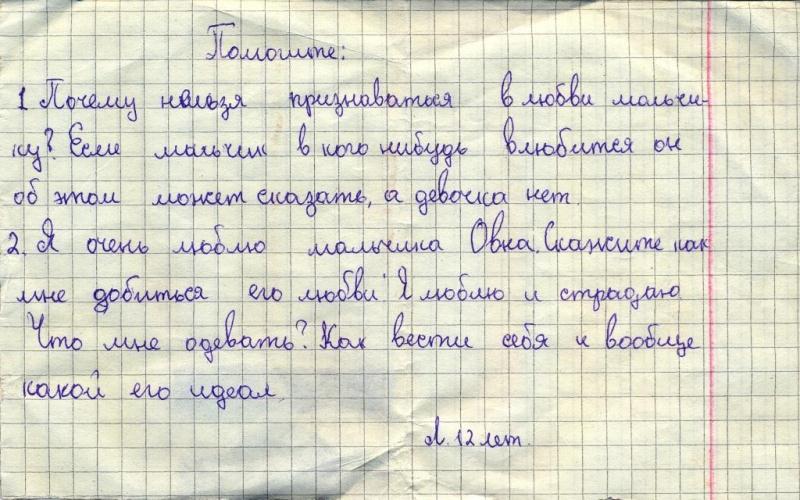 Помогите:
1 Почему нельзя признаваться в любви мальчи-
ку? Если мальчик в кого нибудь влюбится он
об этом может сказать, а девочка нет.
2. Я очень люблю мальчика Овна. Скажите как
мне добиться его любви! Я люблю и страдаю
Что мне одевать? Как вести себя и вообще
какой его идеал.
Л. 12 лет.